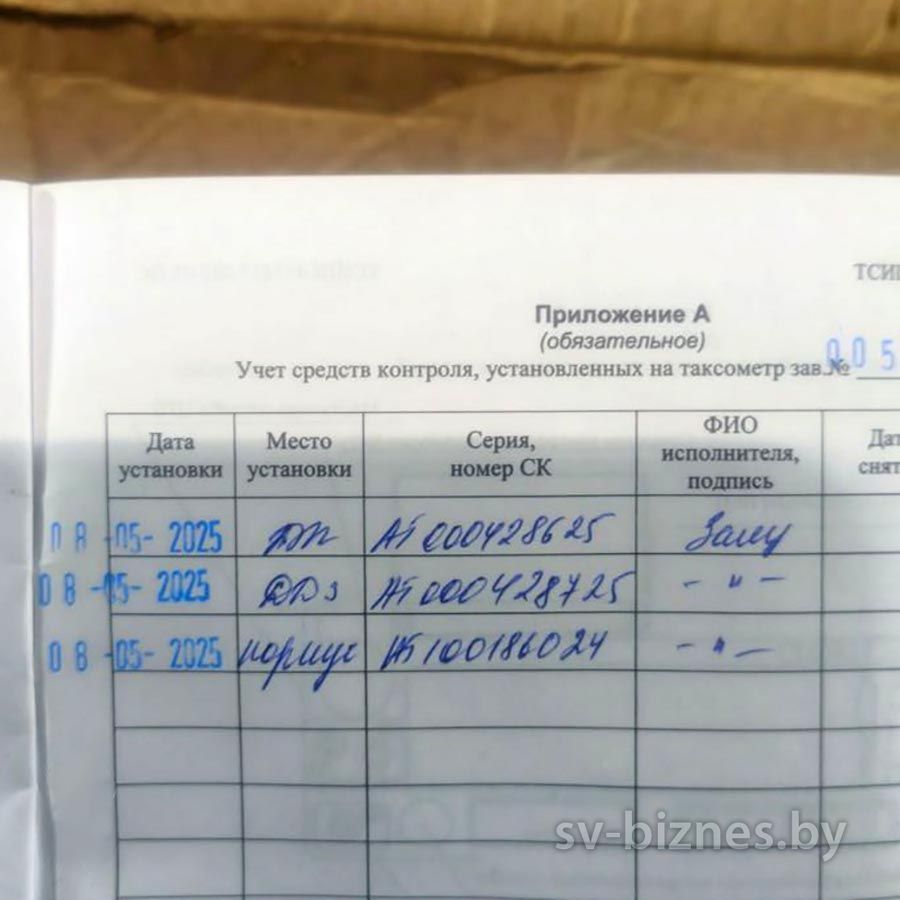 ТСИ
Приложение А
(обязательное)
Учет средств контроля, установленных на таксометр зав.№ 005
Дата установки Место установки Серия, номер СК ФИО исполнителя, подпись Дат снят
08-05-2025 АТ000428625
08-05-2025 АТ000428725 - " -
08-05-2025 корпус АТ100186024 - " -
sv-biznes.by